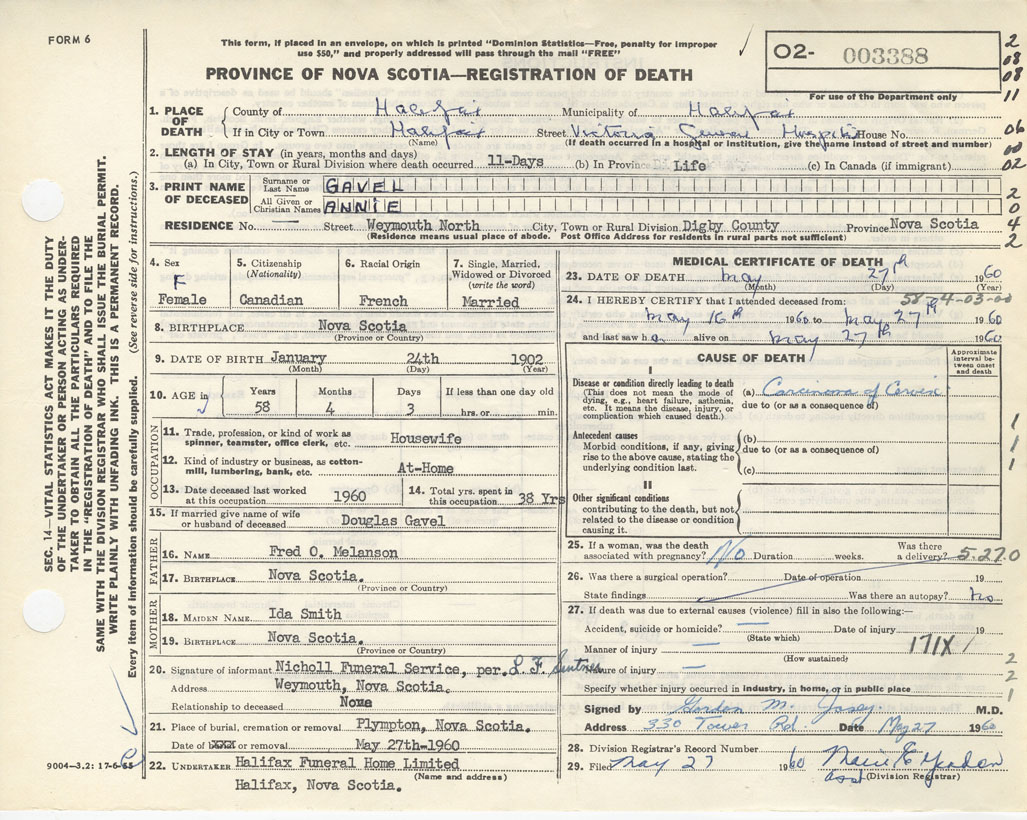 FORM 6
This form, if placed in an envelope, on which is printed "Dominion Statistics—Free, penalty for improper
use $50," and properly addressed will pass through the mail "FREE"
O2- 003388
For use of the Department only
PROVINCE OF NOVA SCOTIA—REGISTRATION OF DEATH
2
08
08
11
06
00
02
2
0
4
2
1. PLACE OF DEATH
County of Halifax Municipality of Halifax
If in City or Town Halifax Street Victoria General Hospital House No.
(Name) (If death occurred in a hospital or institution, give the name instead of street and number)
2. LENGTH OF STAY (in years, months and days)
(a) In City, Town or Rural Division where death occurred 11-Days (b) In Province Life (c) In Canada (if immigrant)
3. PRINT NAME OF DECEASED
Surname or Last Name GAVEL
All Given or Christian Names ANNIE
RESIDENCE No. — Street Weymouth North City, Town or Rural Division Digby County Province Nova Scotia
(Residence means usual place of abode. Post Office Address for residents in rural parts not sufficient)
4. Sex F Female
5. Citizenship (Nationality) Canadian
6. Racial Origin French
7. Single, Married, Widowed or Divorced (write the word) Married
8. BIRTHPLACE Nova Scotia
(Province or Country)
9. DATE OF BIRTH January 24th 1902
(Month) (Day) (Year)
10. AGE in Years 58 Months 4 Days 3 If less than one day old hrs. or min.
OCCUPATION
11. Trade, profession, or kind of work as spinner, teamster, office clerk, etc. Housewife
12. Kind of industry or business, as cotton-mill, lumbering, bank, etc. At-Home
13. Date deceased last worked at this occupation 1960
14. Total yrs. spent in this occupation 38 Yrs
15. If married give name of wife or husband of deceased Douglas Gavel
FATHER
16. NAME Fred O. Melanson
17. BIRTHPLACE Nova Scotia.
(Province or Country)
MOTHER
18. MAIDEN NAME Ida Smith
19. BIRTHPLACE Nova Scotia.
(Province or Country)
20. Signature of informant Nicholl Funeral Service, per.
Address Weymouth, Nova Scotia.
Relationship to deceased None
21. Place of burial, cremation or removal Plympton, Nova Scotia.
Date of or removal May 27th-1960
22. UNDERTAKER Halifax Funeral Home Limited
(Name and address)
Halifax, Nova Scotia.
MEDICAL CERTIFICATE OF DEATH
23. DATE OF DEATH May 27th 1960
(Month) (Day) (Year)
58-4-03-00
24. I HEREBY CERTIFY that I attended deceased from:
May 16th 1960 to May 27th 1960
and last saw h alive on May 27th 1960
CAUSE OF DEATH
Approximate interval between onset and death
I
Disease or condition directly leading to death
(This does not mean the mode of dying, e.g., heart failure, asthenia, etc. It means the disease, injury, or complication which caused death.)
(a) Carcinoma of Cervix
due to (or as a consequence of)
Antecedent causes
Morbid conditions, if any, giving rise to the above cause, stating the underlying condition last.
(b)
due to (or as a consequence of)
(c)
1
1
1
II
Other significant conditions
contributing to the death, but not related to the disease or condition causing it.
25. If a woman, was the death associated with pregnancy? No Duration weeks. Was there a delivery? 5.27.0
26. Was there a surgical operation? Date of operation 19
State findings Was there an autopsy? No
27. If death was due to external causes (violence) fill in also the following:—
Accident, suicide or homicide? — Date of injury 19
(State which)
Manner of injury — 171X
(How sustained)
Nature of injury —
2
2
1
Specify whether injury occurred in industry, in home, or in public place
Signed by Gordon M. M.D.
Address 330 Tower Rd. Date May 27 1960
28. Division Registrar's Record Number
29. Filed May 27 1960
(Division Registrar)
9004-3.2: 17-6-
SEC. 14—VITAL STATISTICS ACT MAKES IT THE DUTY
OF THE UNDERTAKER OR PERSON ACTING AS UNDER-
TAKER TO OBTAIN ALL THE PARTICULARS REQUIRED
IN THE "REGISTRATION OF DEATH" AND TO FILE THE
SAME WITH THE DIVISION REGISTRAR WHO SHALL ISSUE THE BURIAL PERMIT.
WRITE PLAINLY WITH UNFADING INK. THIS IS A PERMANENT RECORD.
Every item of information should be carefully supplied. (See reverse side for instructions.)